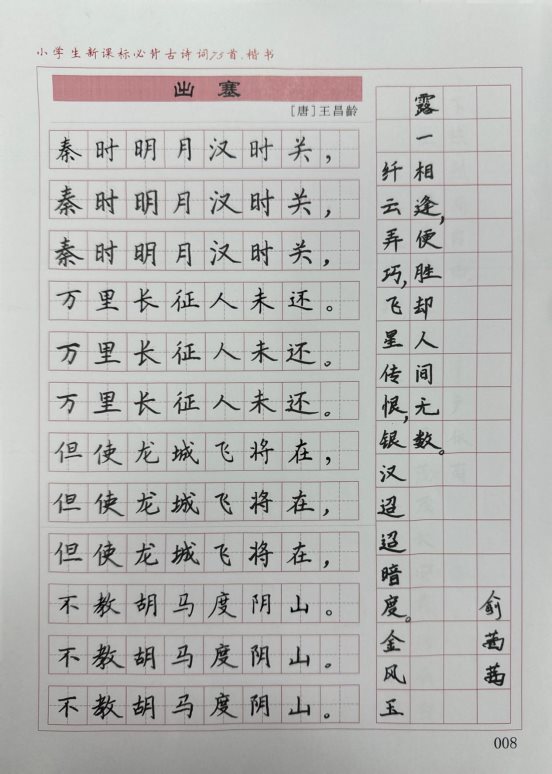 小学生新课标必背古诗词75首.楷书
出塞
[唐]王昌龄
秦时明月汉时关，
秦时明月汉时关，
秦时明月汉时关，
万里长征人未还。
万里长征人未还。
万里长征人未还。
但使龙城飞将在，
但使龙城飞将在，
但使龙城飞将在，
不教胡马度阴山。
不教胡马度阴山。
不教胡马度阴山。
纤云弄巧，飞星传恨，银汉迢迢暗度。金风玉
露一相逢，便胜却人间无数。
俞茜茜
008